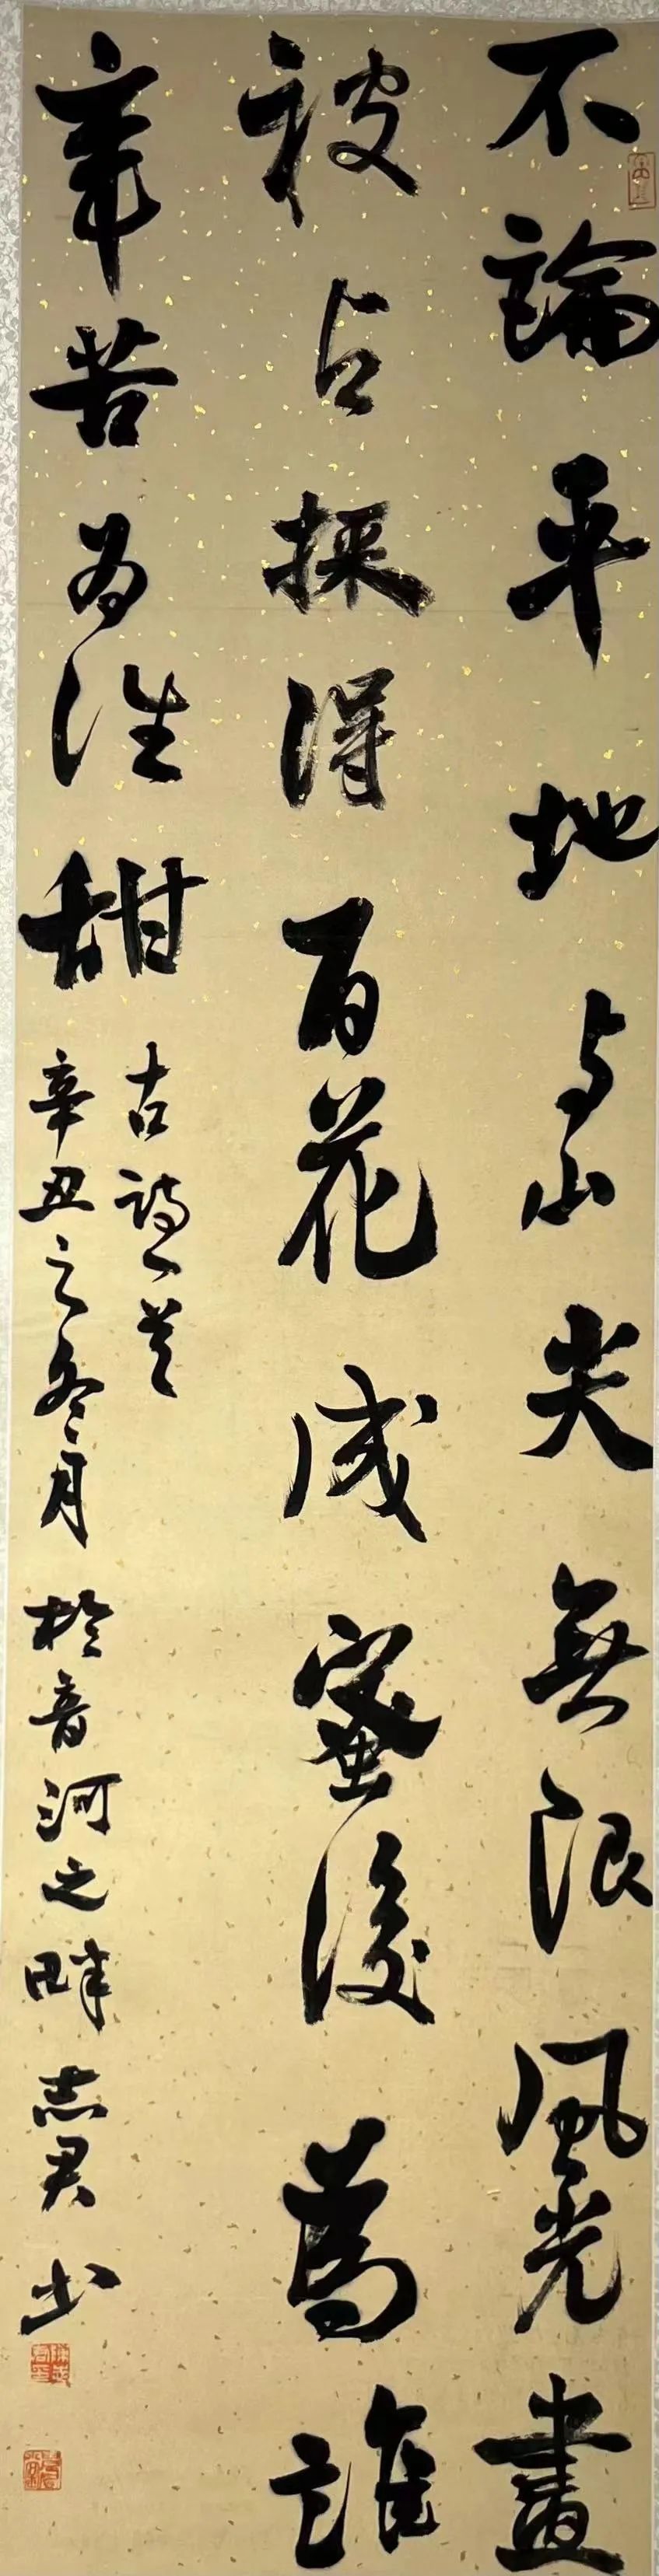 不論平地与山尖無限風光盡
被占採得百花成蜜後為誰
辛苦为誰甜
古詩一首
辛丑之冬月於音河之畔志君书